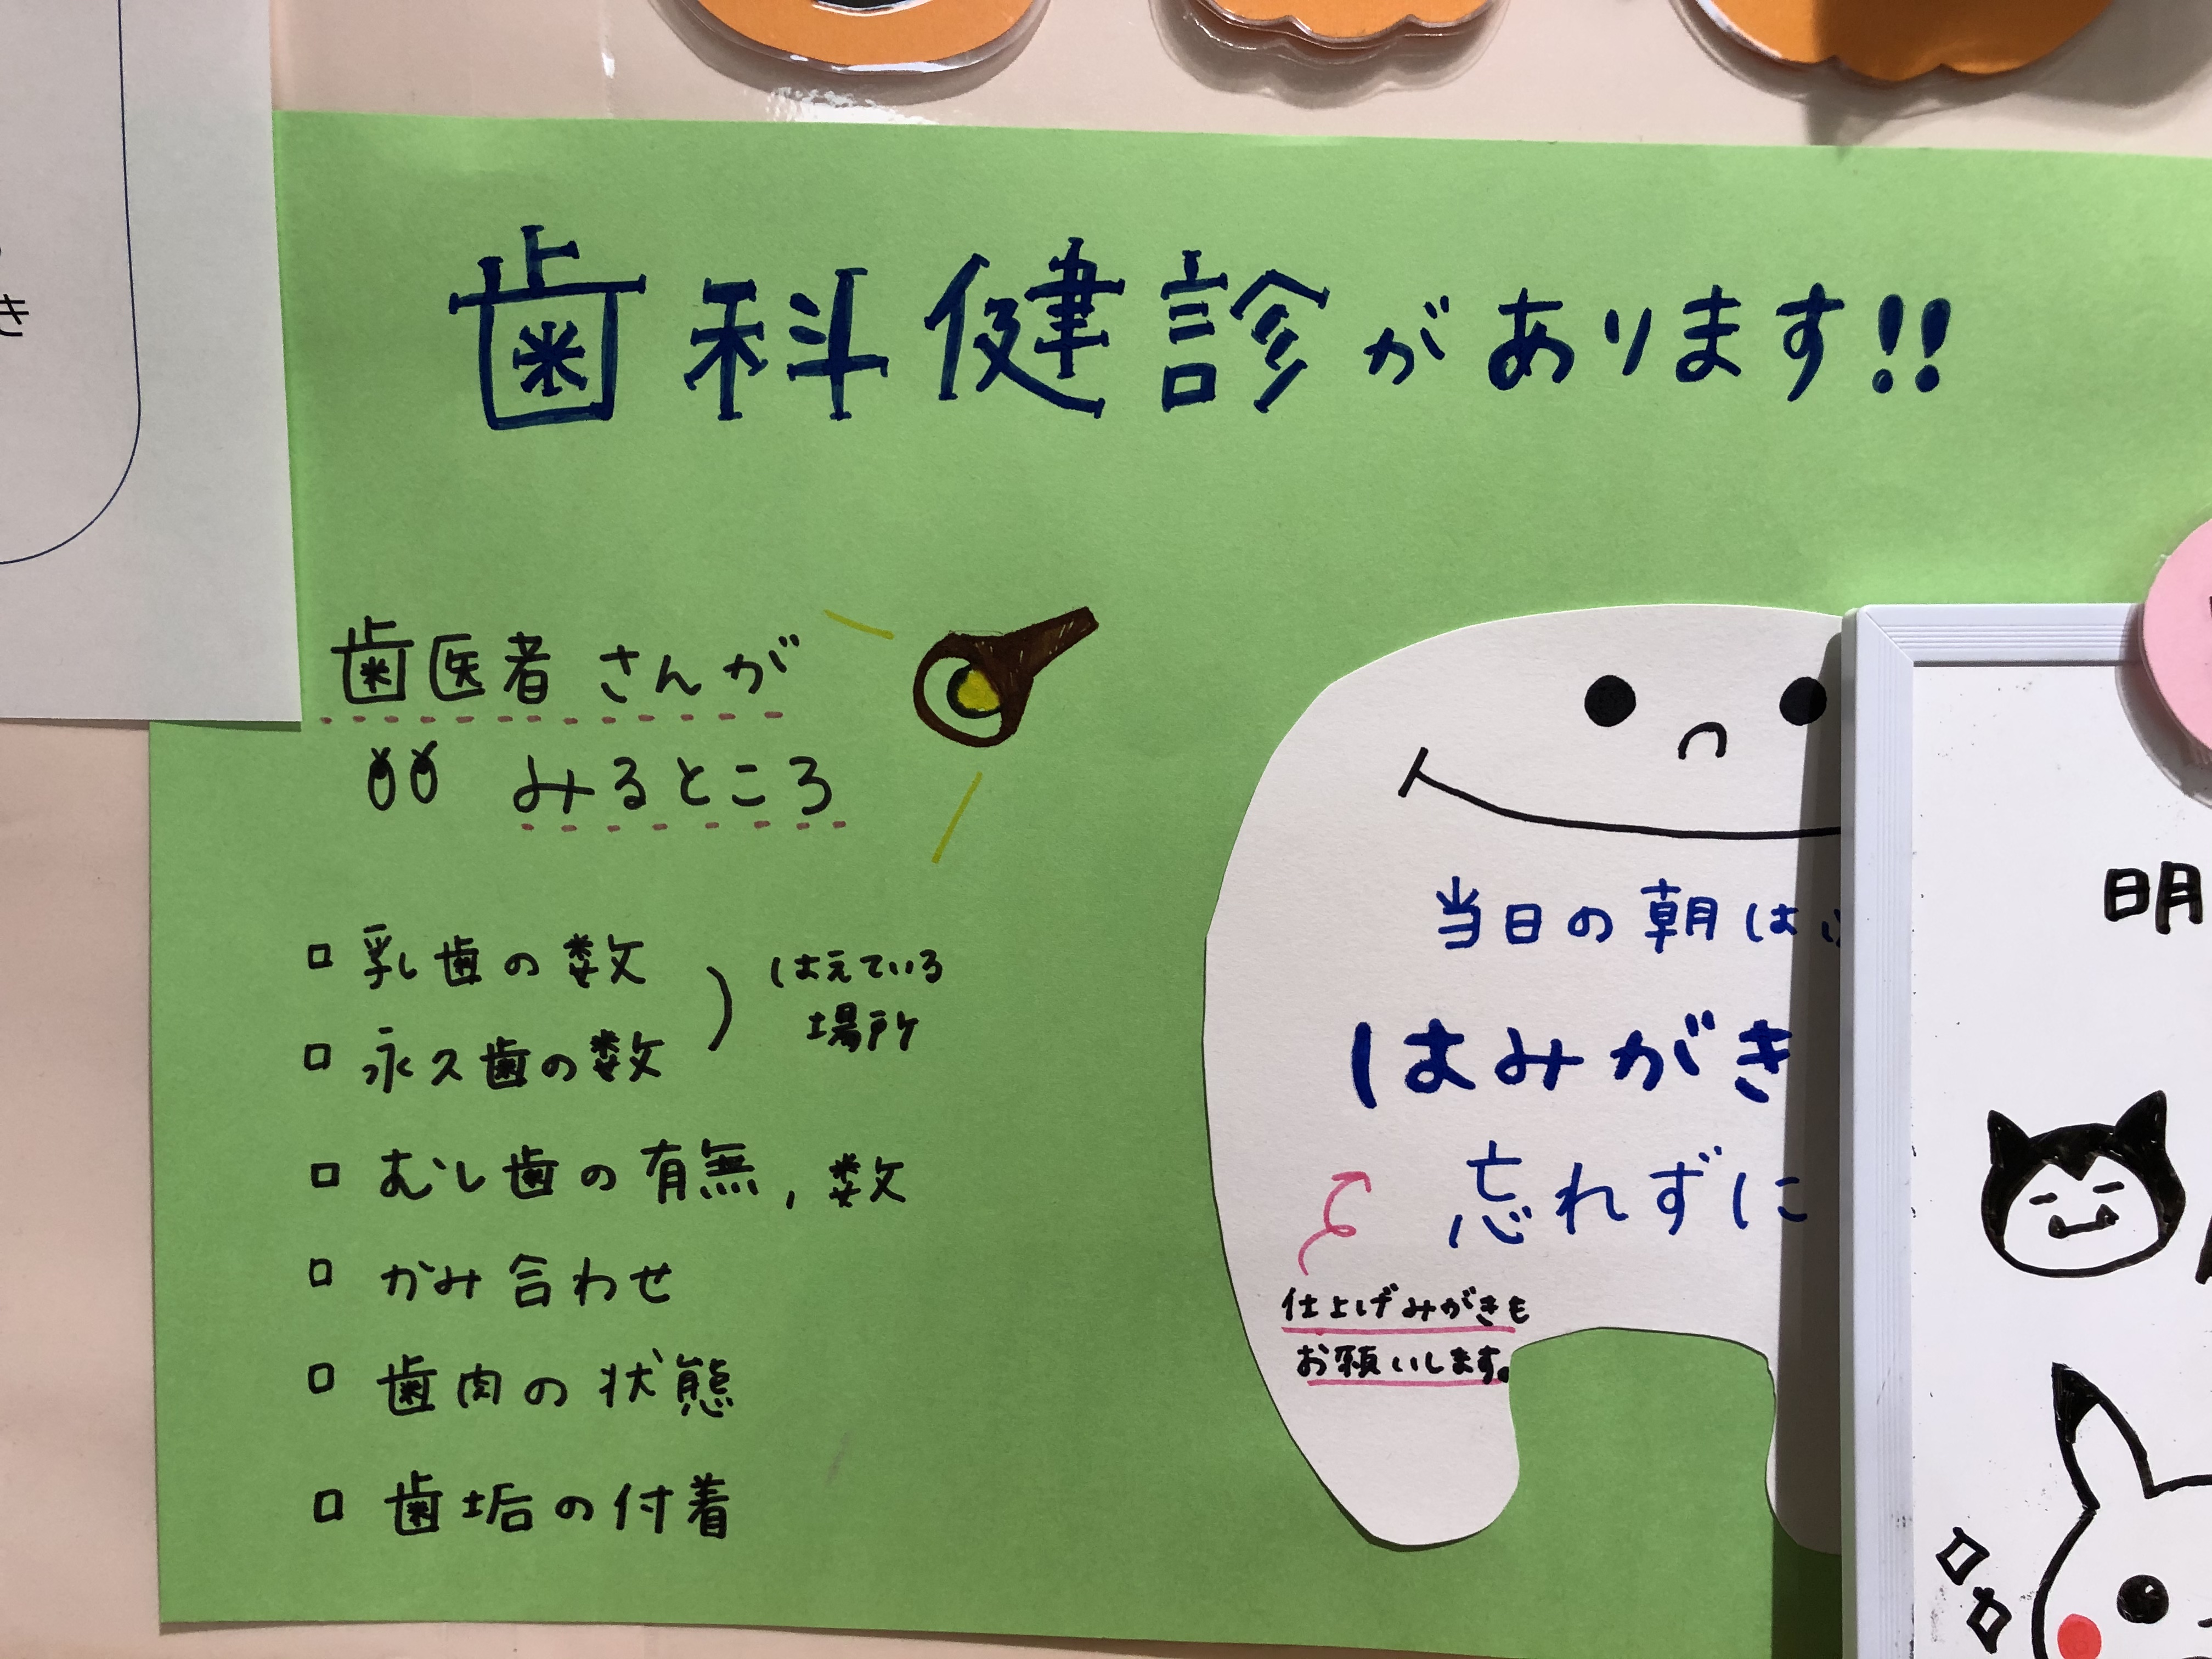 き
歯科健診があります!!
歯医者さんが
みるところ
乳歯の数
永久歯の数
はえている
場所
むし歯の有無, 数
かみ合わせ
歯肉の状態
歯垢の付着
当日の朝は
はみがき
忘れずに
仕上げみがきも
お願いします。
明